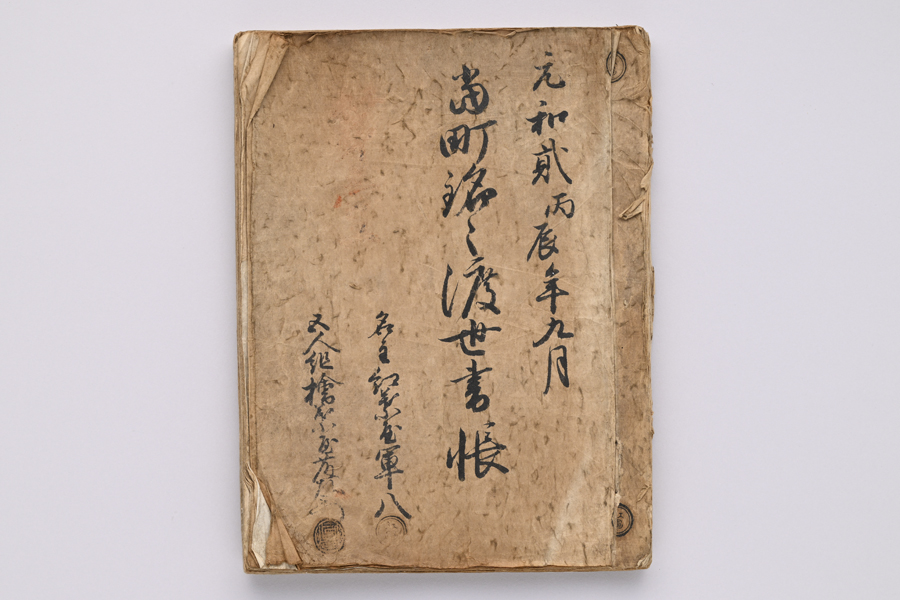 元和貳丙辰年九月
當町銘々渡世書帳
名主 紅葉屋軍八
五人組檜